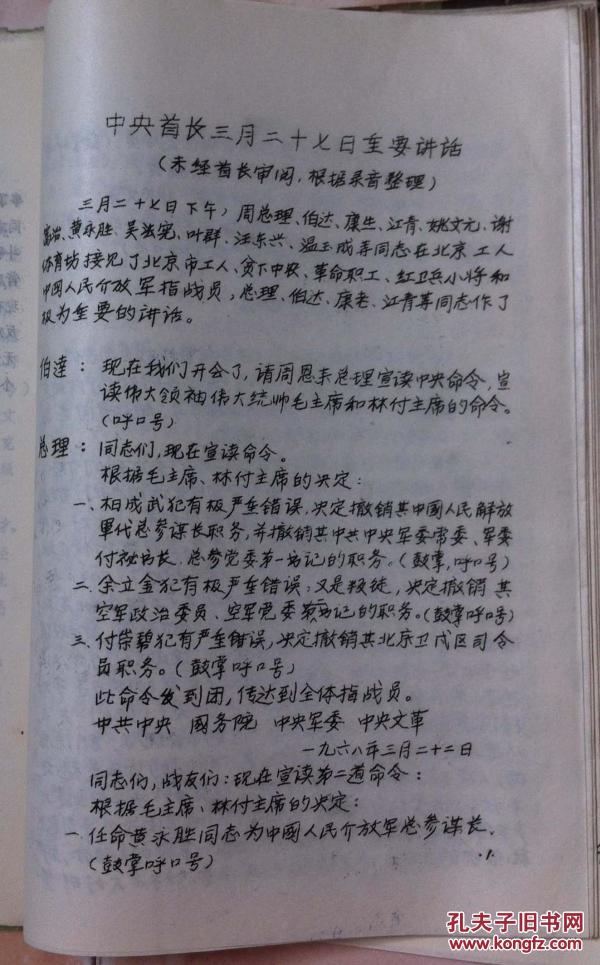 中央首长三月二十七日重要讲话
（未经首长审阅，根据录音整理）
三月二十七日下午，周总理、伯达、康生、江青、姚文元、谢
富治、黄永胜、吴法宪、叶群、汪东兴、温玉成等同志在北京工人
体育场接见了北京市工人、贫下中农、革命职工、红卫兵小将和
中國人民介放军指战员，总理、伯达、康老、江青等同志作了
极为重要的讲话。
伯達：现在我们开会了，请周恩来总理宣读中央命令，宣
读伟大领袖伟大统帅毛主席和林付主席的命令。
（呼口号）
总理：同志们，现在宣读命令。
根据毛主席、林付主席的决定：
一、杨成武犯有极严重错误，决定撤销其中國人民解放
军代总参谋长职务，并撤销其中共中央军委常委、军委
付秘书长、总参党委第一书记的职务。（鼓掌，呼口号）
二、余立金犯有极严重错误，又是叛徒，决定撤销其
空军政治委员、空军党委第二书记的职务。（鼓掌呼口号）
三、付崇碧犯有严重错误，决定撤销其北京卫戍区司令
员职务。（鼓掌呼口号）
此命令发到团，传达到全体指战员。
中共中央 國务院 中央军委 中央文革
一九六八年三月二十二日
同志们，战友们：现在宣读第二道命令：
根据毛主席、林付主席的决定：
一、任命黄永胜同志为中國人民介放军总参谋长。
（鼓掌呼口号）
·1·
孔夫子旧书网
www.kongfz.com